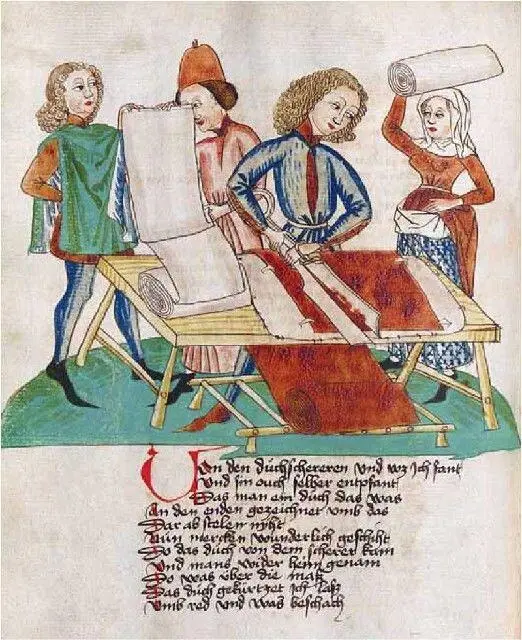 Von den duchschereren vnd wz ich fant
vnd sin ouch selber entpfant
Das man ein duch das was
An den enden gezeichnet vmb das
Dar ab stelen nyht
Nun mercken wunderlich geschiht
Do das duch von dem scherer kam
Vnd mans wider heim genam
Do was über die maß
Das duch gekürtzet ich laß
vmb red vnd was beschach